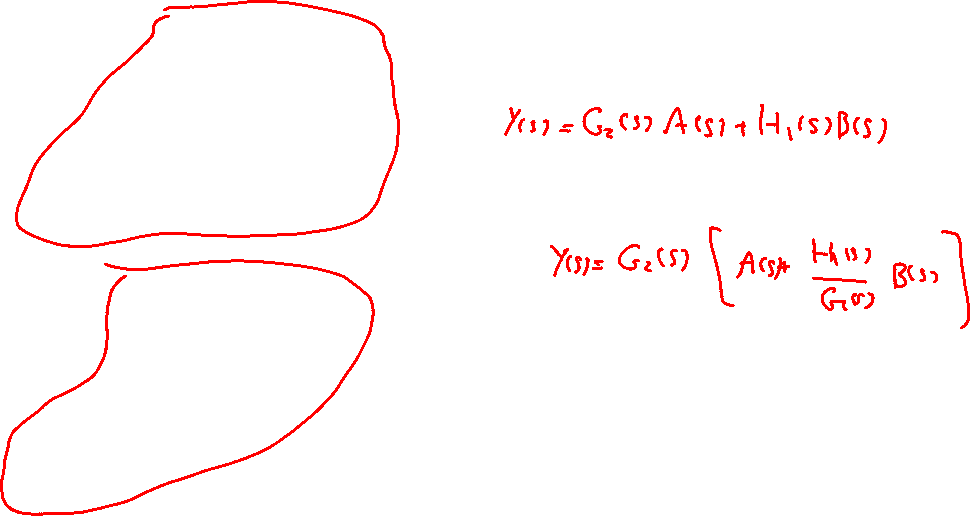 Y(s) = G₂(s) A(s) + H₁(s) B(s)
Y(s) = G₂(s) [ A(s) + H₁(s)/G₂(s) B(s) ]